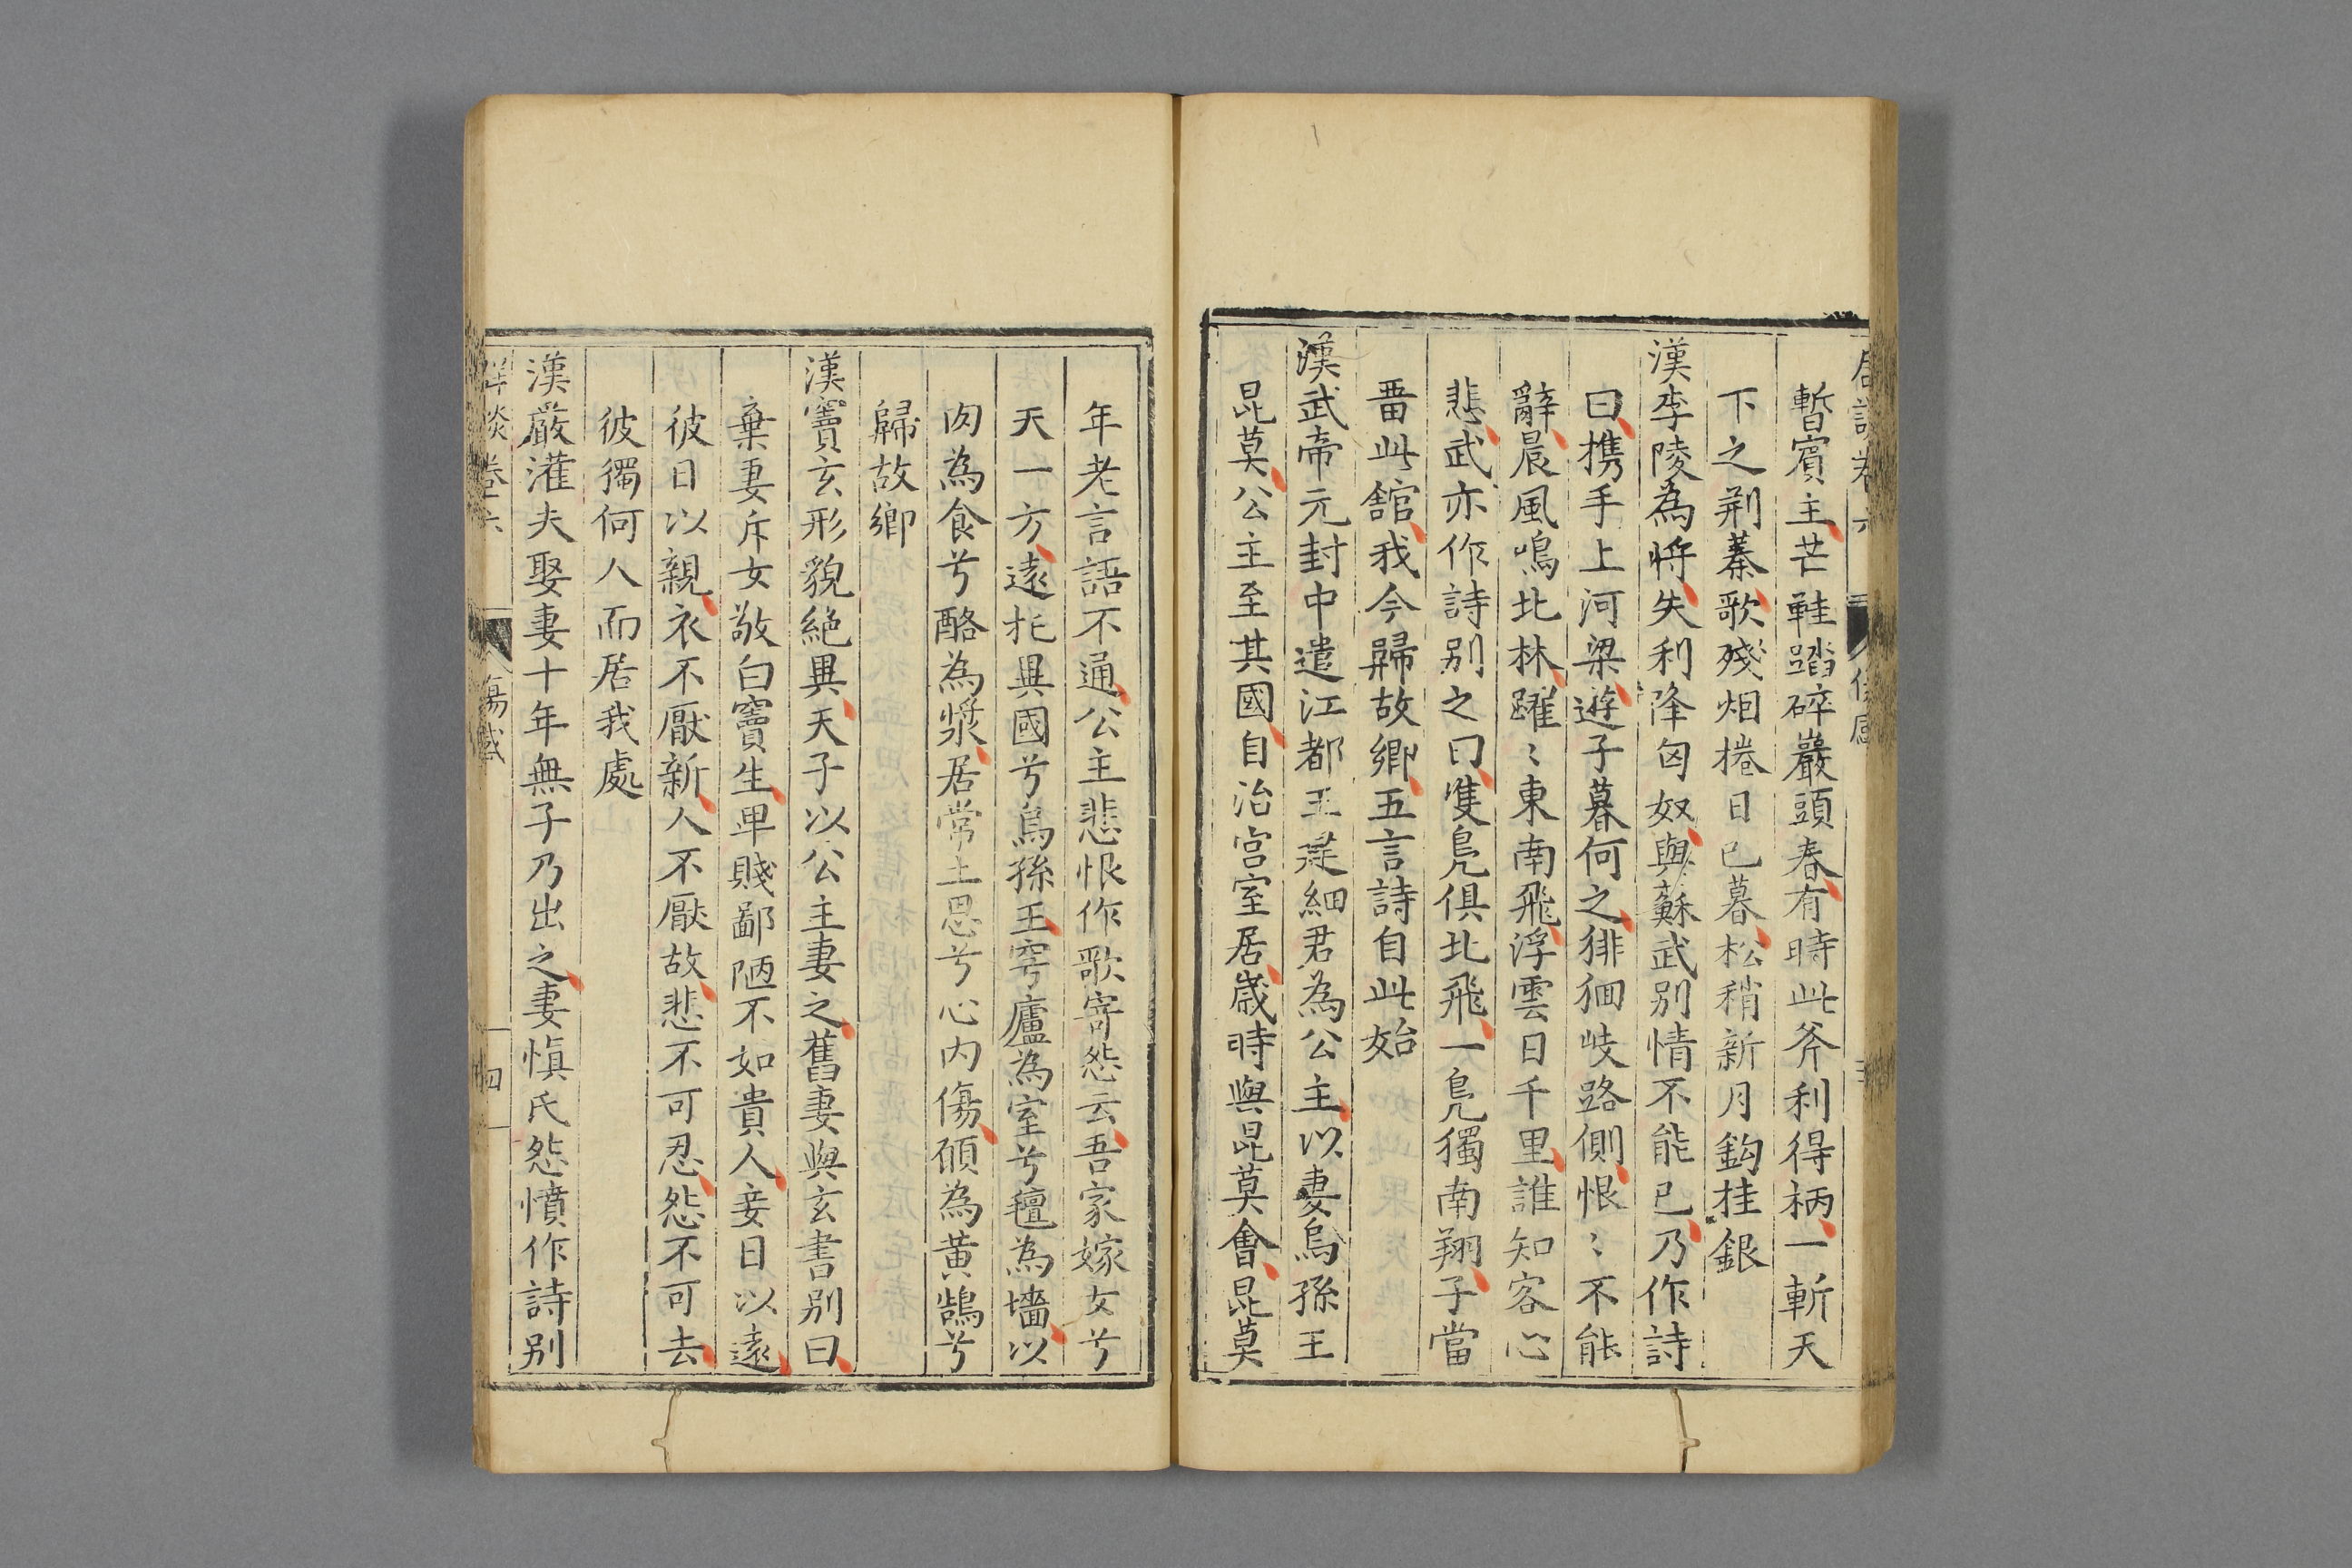 暫賓主芒鞋踏碎巖頭春有時此斧利得柄一斬天
下之荊蓁歌殘烟捲日已暮松稍新月鈎挂銀
漢李陵為將失利降匈奴與蘇武别情不能已乃作詩
曰携手上河梁遊子暮何之徘徊岐路側恨〻不能
辭晨風鳴北林躍〻東南飛浮雲日千里誰知客心
悲武亦作詩别之曰雙鳬俱北飛一鳬獨南翔子當
畱此舘我今歸故鄉五言詩自此始
漢武帝元封中遣江都王建細君為公主以妻烏孫王
昆莫公主至其國自治宫室居歲時與昆莫會昆莫
年老言語不通公主悲恨作歌寄怨云吾家嫁女兮
天一方遠托異國兮烏孫王穹廬為室兮氊為墻以
肉為食兮酪為漿居常土思兮心内傷願為黄鵠兮
歸故鄉
漢竇玄形貌絶異天子以公主妻之舊妻與玄書别曰
棄妻斥女敬白竇生卑賤鄙陋不如貴人妾日以遠
彼日以親衣不厭新人不厭故悲不可忍怨不可去
彼獨何人而居我處
漢嚴灌夫娶妻十年無子乃出之妻慎氏怨憤作詩别
卷六
傷感
四